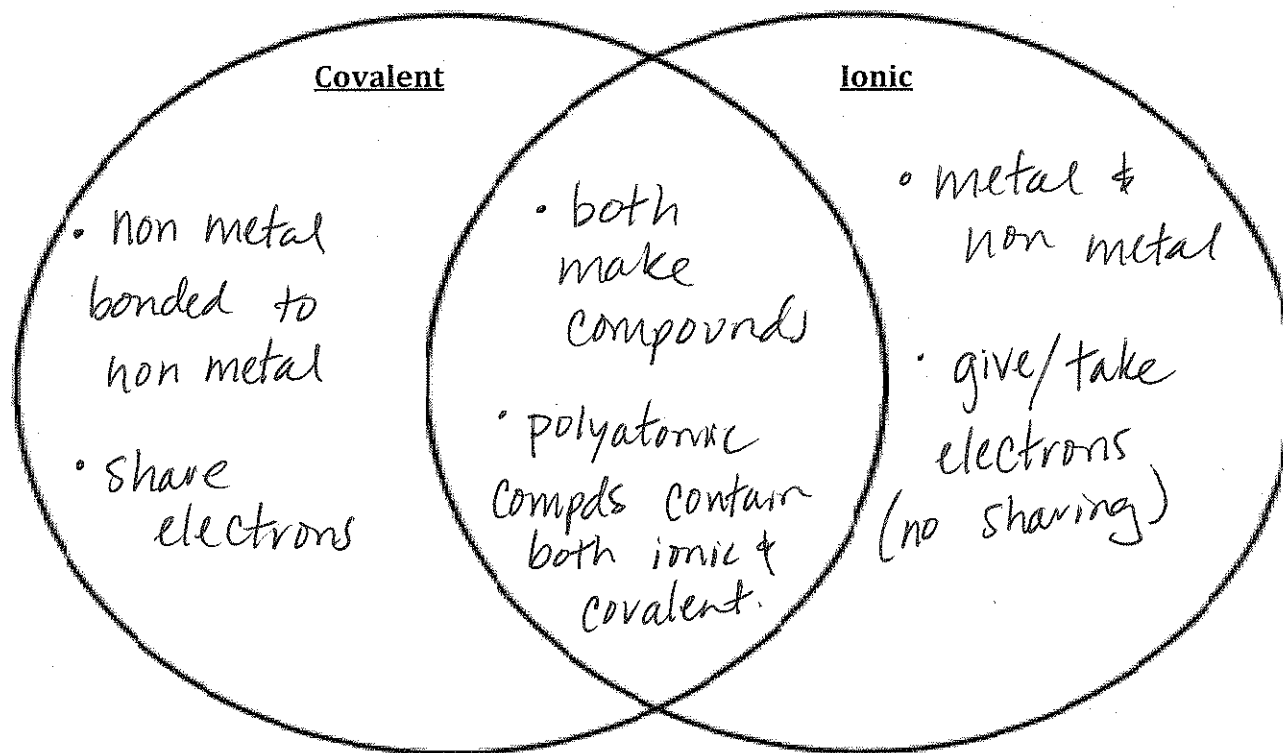 Covalent
• non metal
bonded to
non metal
• share
electrons
• both
make
compounds
• polyatomic
compds contain
both ionic &
covalent.
Ionic
• metal &
non metal
• give/take
electrons
(no sharing)